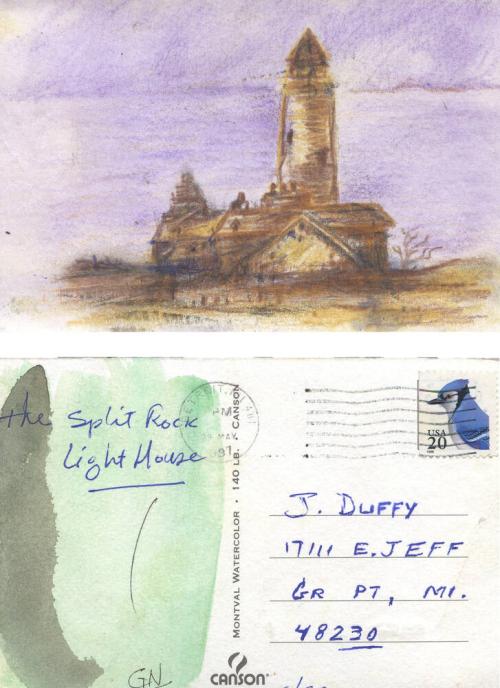 the Split Rock
Light House
GN
PM
MAY
MONTVAL WATERCOLOR • 140 LB. • CANSON
USA
20
J. DUFFY
17111 E. JEFF
GR PT, MI.
48230
CANSON